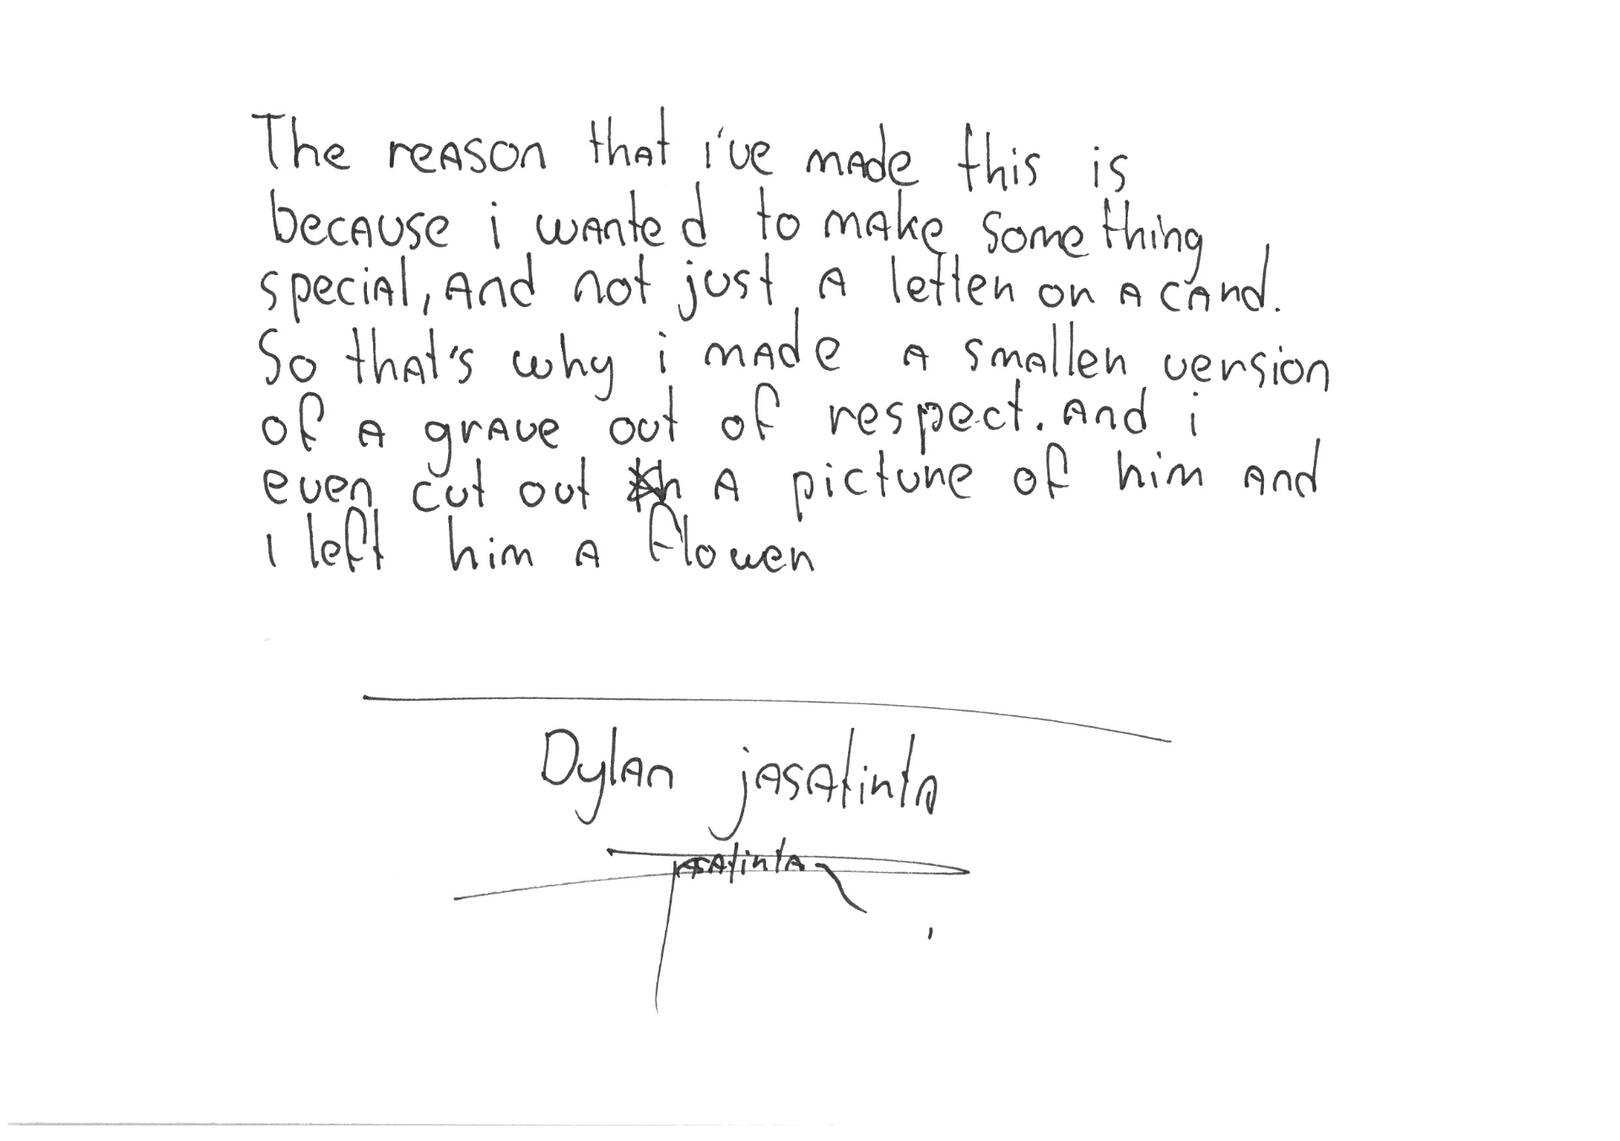 The reason that i've made this is
because i wanted to make something
special, And not just A letter on A card.
So that's why i made A smaller version
of A grave out of respect. And i
even cut out A picture of him and
i left him A flower
Dylan jasatinta
jasatinta